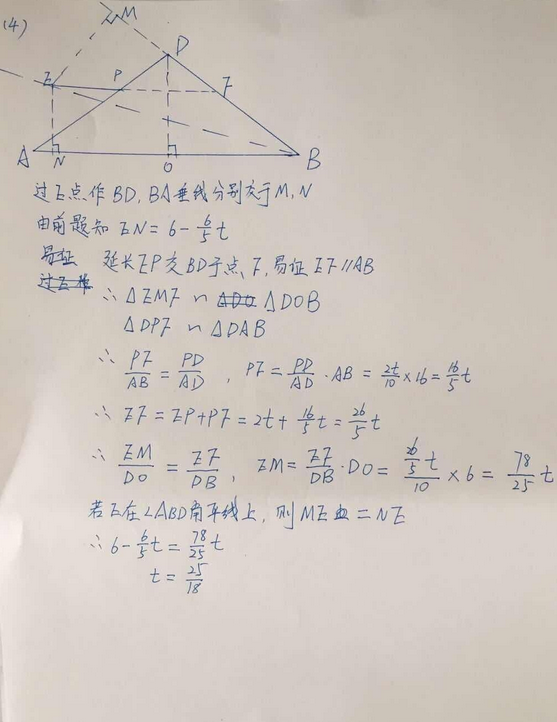 (4)
M
D
E P F
A N O B
过E点作BD,BA垂线分别交于M,N
由前题知 EN=6-6/5t
易证 延长EP交BD于点F,易证EF∥AB
∴ △EMF ∽ △DOB
△DPF ∽ △DAB
∴ PF/AB = PD/AD , PF = PD/AD · AB = 2t/10 × 16 = 16/5t
∴ EF = EP+PF = 2t + 16/5t = 26/5t
∴ EM/DO = EF/DB , EM = EF/DB · DO = 26/5t/10 × 6 = 78/25t
若E在∠ABD角平线上,则ME=NE
∴ 6-6/5t = 78/25t
t = 25/18